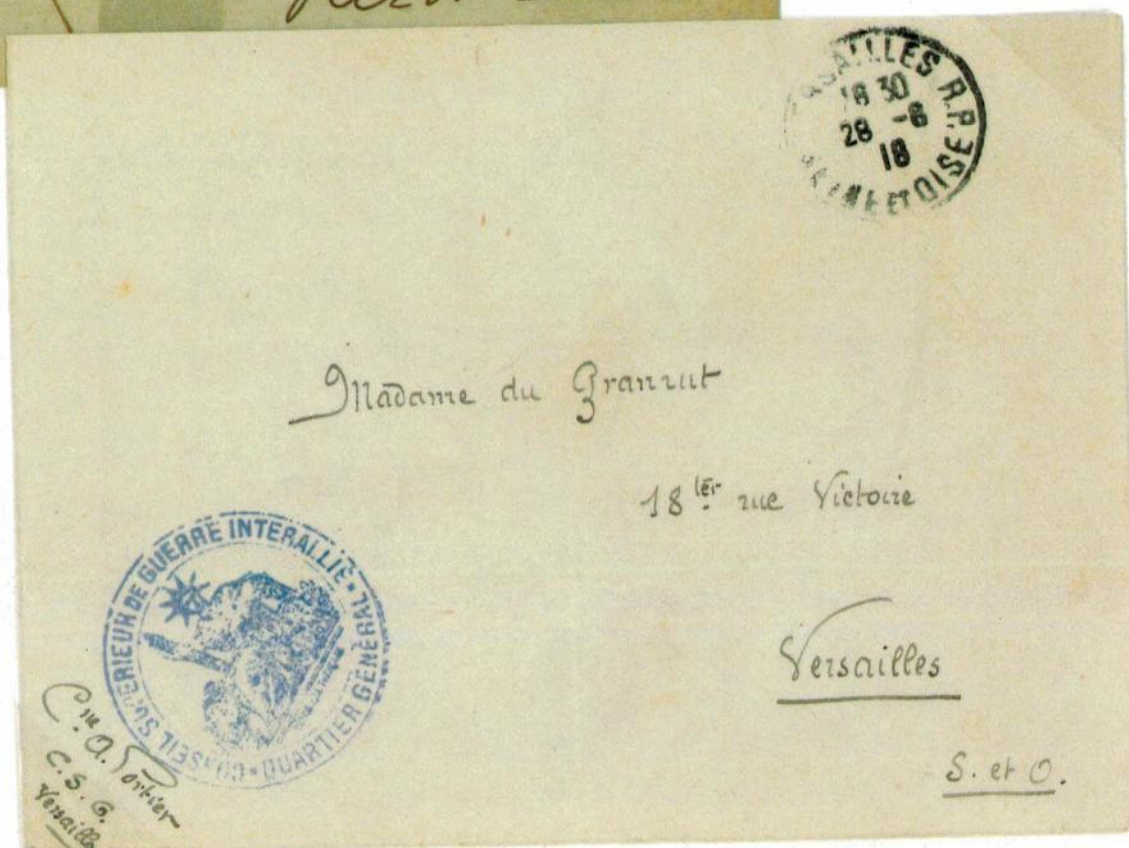 VERSAILLES R.P.
18 30
28 -6
18
SEINE ET OISE
Madame du Granrut
18 ter rue Victoire
Versailles
S. et O.
CONSEIL SUPERIEUR DE GUERRE INTERALLIÉ • QUARTIER GÉNÉRAL
Cne A. Portier
C.S.G.
Versailles